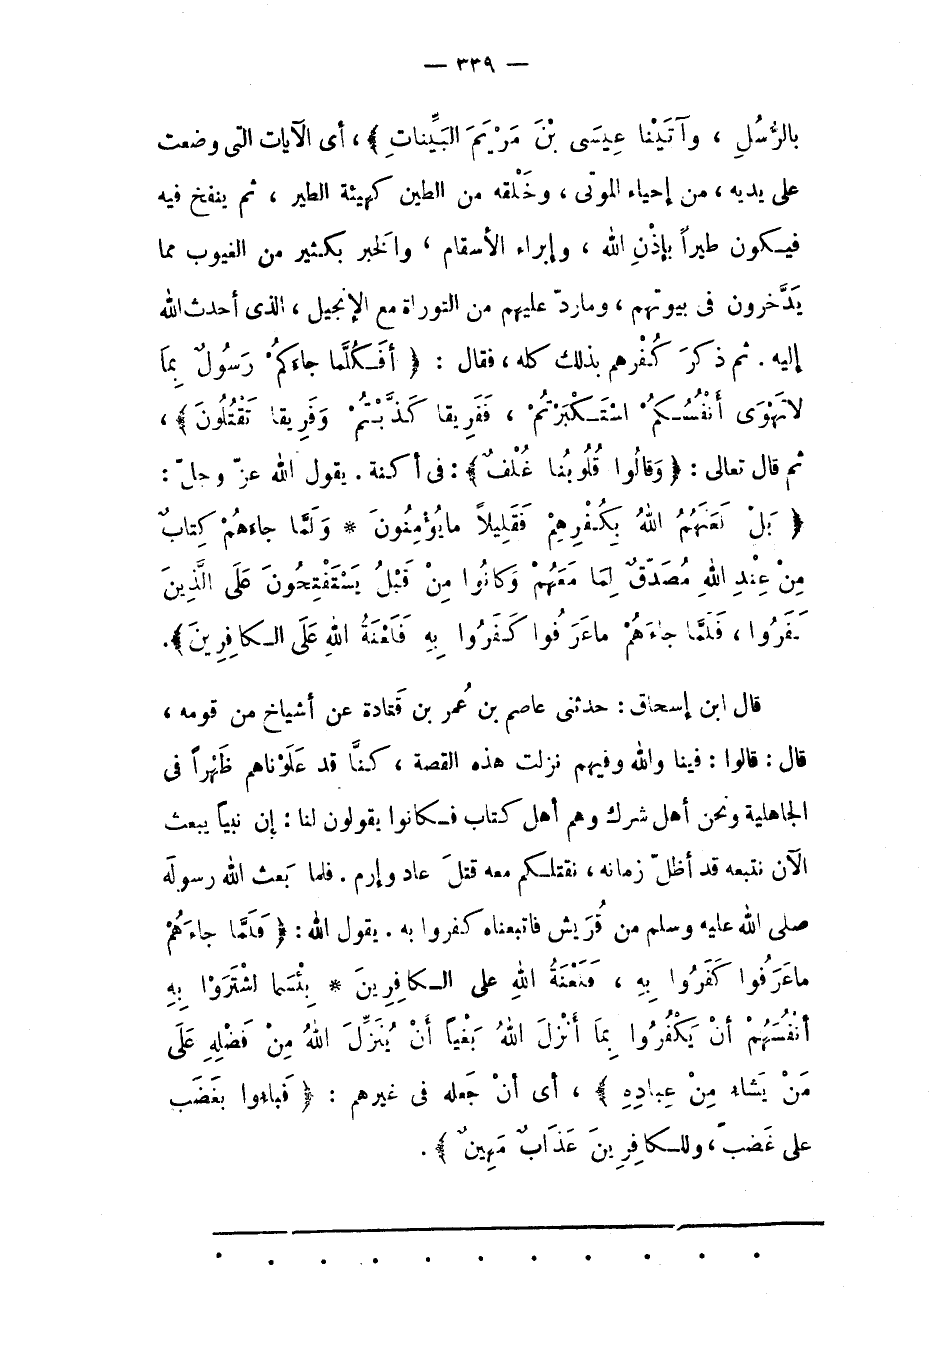 — ٣٣٩ —
بالرُّسُلِ ، وآتَيْنا عِيسَى بْنَ مَرْيَمَ البَيِّناتِ ﴾ ، أى الآيات التى وضعت
على يديه ، من إحياء الموتى ، وخَلْقه من الطين كهيئة الطير ، ثم ينفخ فيه
فيكون طيراً بإذْنِ الله ، وإبراء الأسقام ، والخبر بكثير من الغيوب مما
يَدَّخرون فى بيوتهم ، وماردّ عليهم من التوراة مع الإنجيل ، الذى أحدث الله
إليه . ثم ذكرَ كُفْرهم بذلك كله ، فقال : ﴿ أفَكُلَّما جاءَكمُ رَسُولٌ بِمَا
لاتَهْوَى أَنْفُسُكمُ اسْتَكْبَرْتُمْ ، فَفَرِيقا كَذَّبْتُمْ وَفَرِيقا تَقْتُلُونَ ﴾ ،
ثم قال تعالى : ﴿ وَقالُوا قُلُوبُنا غُلْفٌ ﴾ : فى أكنة . يقول الله عزّ وجلّ :
﴿ بَلْ لَعَنَهُمُ اللهُ بِكُفْرِهِمْ فَقَلِيلاً مايُؤْمِنُونَ * وَلَمَّا جاءَهُمْ كِتابٌ
مِنْ عِنْدِ اللهِ مُصَدّقٌ لِمَا مَعَهُمْ وَكانُوا مِنْ قَبْلُ يَسْتَفْتِحُونَ عَلَى الَّذِينَ
كَفَرُوا ، فَلَمَّا جاءَهُمْ ماعَرَفُوا كَفَرُوا بِهِ فَلَعْنَةُ اللهِ عَلَى الكافِرِينَ ﴾.
قال ابن إسحاق : حدثنى عاصم بن عُمر بن قَتادة عن أشياخ من قومه ،
قال : قالوا : فينا والله وفيهم نزلت هذه القصة ، كنَّا قد عَلَوْناهم ظَهْراً فى
الجاهلية ونحن أهل شرك وهم أهل كتاب فكانوا يقولون لنا : إن نبياً يبعث
الآن نتبعه قد أظلّ زمانه ، نقتلكم معه قتلَ عاد وإرم . فلما بَعث الله رسولَه
صلى الله عليه وسلم من قُرَيش فاتبعناه كفروا به . يقول الله : ﴿ فَلَمَّا جاءَهُمْ
ماعَرَفُوا كَفَرُوا بِهِ ، فَلَعْنَةُ اللهِ على الكافِرِينَ * بِئْسَما اشْتَرَوْا بِهِ
أنْفُسَهُمْ أنْ يَكْفُرُوا بِمَا أَنْزَلَ اللهُ بَغْياً أَنْ يُنَزِّلَ اللهُ مِنْ فَضْلِهِ عَلَى
مَنْ يَشاءُ مِنْ عِبادِهِ ﴾ ، أى أنْ جَعله فى غيرهم : ﴿ فَباءوا بغَضَب
على غَضب ، وللكافِرِينَ عَذَابٌ مَهِينٌ ﴾ .